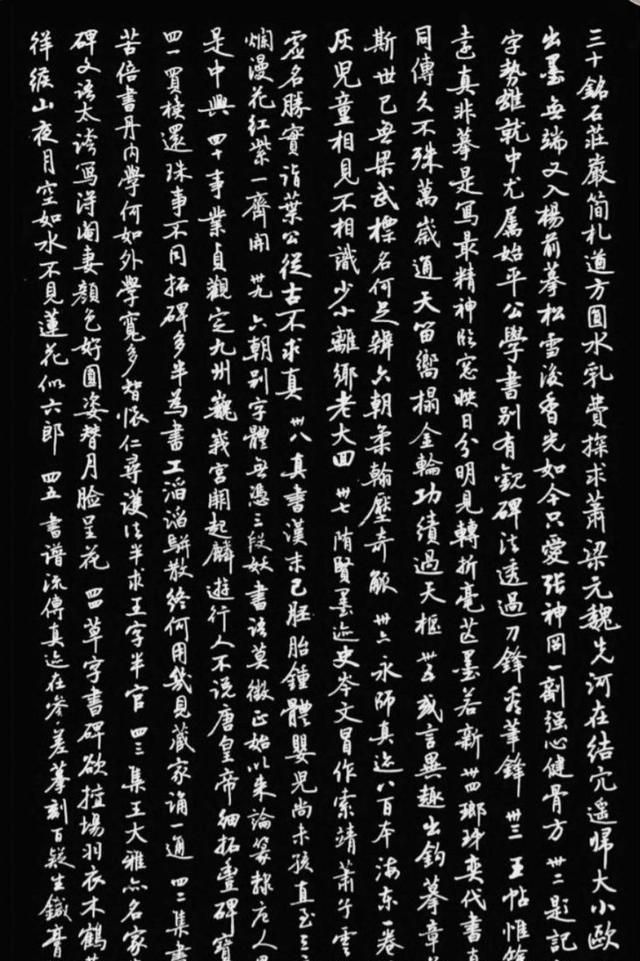 三十 銘石莊嚴簡札遒方圓水乳費探求蕭梁元魏先河在結穴遙歸大小歐
出墨無端又入楊前摹松雪後香光如今只愛張神冏一劑強心健骨方 卅二 題記
字勢雖就中尤屬始平公學書別有觀碑法透過刀鋒看筆鋒 卅三 王帖惟餘
遠真非摹是寫最精神臨窗映日分明見轉折毫芒墨若新 卅四 瑯玡奕代書
同傳久不殊萬歲通天留嚮搨金輪功績過天樞 卅五 或言異趣出鉤摹章
斯世已無梁武標名何足辨六朝柔翰壓奇觚 卅六 永師真迹八百本海東一卷
灰兒童相見不相識少小離鄉老大回 卅七 隋賢墨迹史岑文冒作索靖蕭子雲
虛名勝實詣葉公從古不求真 卅八 真書漢末已胚胎鍾體嬰兒尚未孩直至三
爛漫花紅紫一齊開 卅九 六朝別字體無憑三段妖書語莫徵正始以來論篆隸唐人
是中興 四十 事業貞觀定九州巍峩宮闕起麟遊行人不說唐皇帝細拓豐碑寶
四一 買櫝還珠事不同拓碑多半為書工滔滔駢散終何用幾見藏家誦一通 四二 集書
苦倍書丹內學何如外學寬多智懷仁尋護法半求王字半官 四三 集王大雅亦名家
碑文語太誇寫得閨妻顏色好圓姿替月臉呈花 四四 草字書碑欲擅場羽衣木鶴
徉緱山夜月空如水不見蓮花似六郎 四五 書譜流傳真迹在參差摹刻百疑生針膏